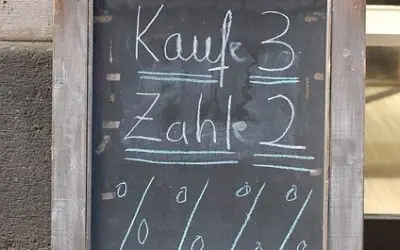 Kaufe 3
Zahle 2
% % % %